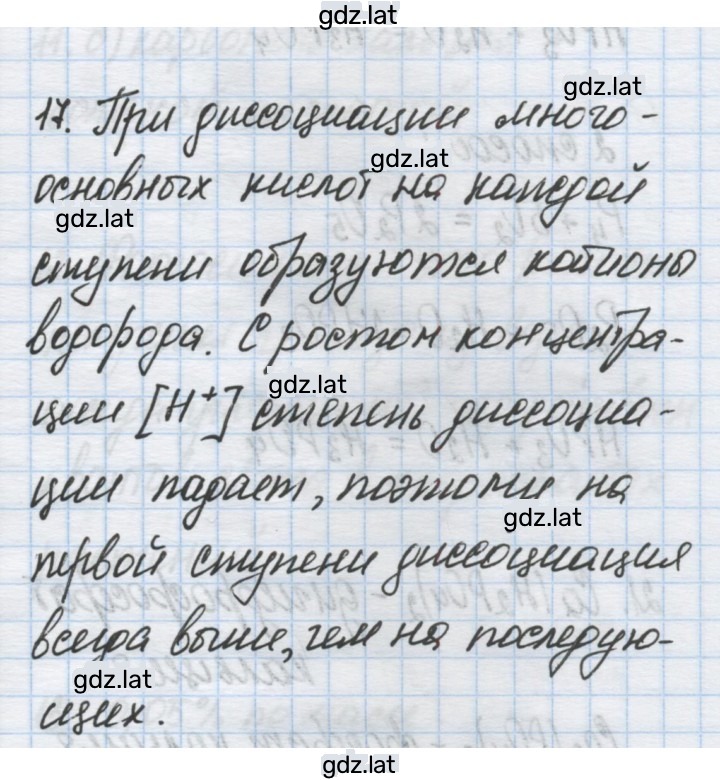 gdz.lat
17. При диссоциации много-
gdz.lat
основных кислот на каждой
gdz.lat
gdz.lat
ступени образуются катионы
водорода. С ростом концентра-
gdz.lat
ции [H⁺] степень диссоциа-
ции падает, поэтому на
gdz.lat
первой ступени диссоциация
всегда выше, чем на последую-
gdz.lat
щих.
gdz.lat